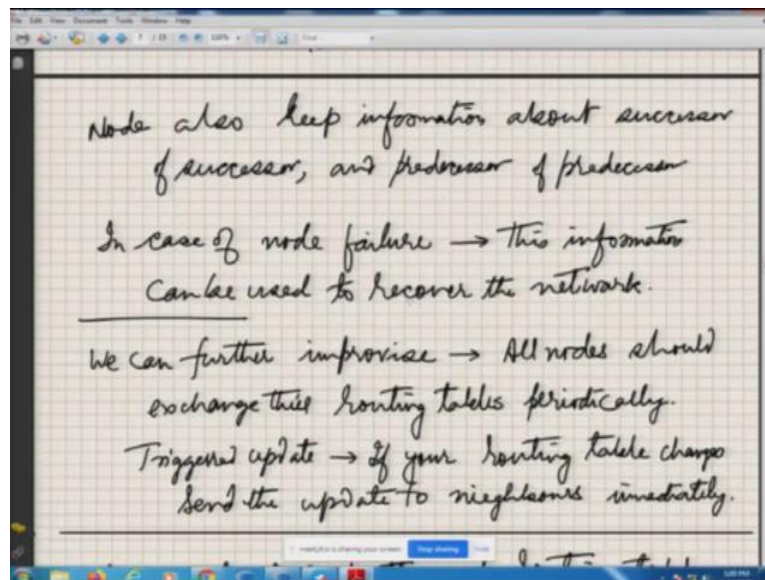 File Edit View Document Tools Window Help
7 / 15
Node also keep information about successor
of successor, and predecessor of predecessor
In case of node failure → This information
Can be used to recover the network.
We can further improvise → All nodes should
exchange their routing tables periodically.
Triggered update → If your routing table changes
Send the update to nieghbours immediately.
meet.jit.si is sharing your screen. Stop sharing Hide
5:00 PM